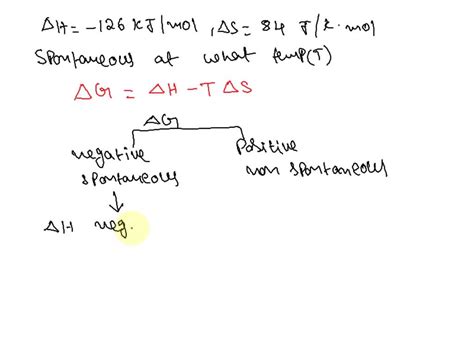 ΔH = -126 kJ/mol, ΔS = 84 J/k·mol
Spontaneous at what temp(T)
ΔG = ΔH - TΔS
ΔG
negative positive
spontaneous non spontaneous
ΔH neg.